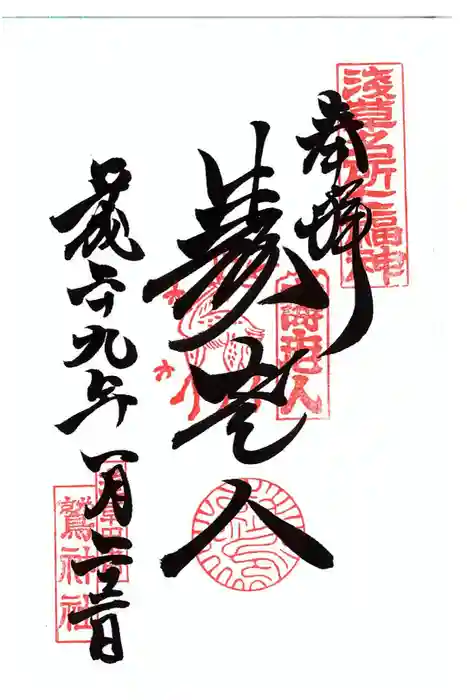 淺草名所七福神
奉拝
壽老人
寿老人
平成二十九年一月
鷲神社